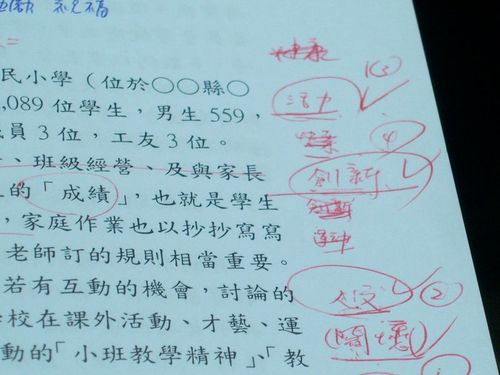 祝福
民小學（位於○○縣○
,089 位學生，男生 559，
員 3 位，工友 3 位。
、班級經營、及與家長
的「成績」，也就是學生
，家庭作業也以抄抄寫寫
老師訂的規則相當重要。
若有互動的機會，討論的
校在課外活動、才藝、運
動的「小班教學精神」、「教
健康
活力
創新
創新
精神
人文
(關懷)
②
④